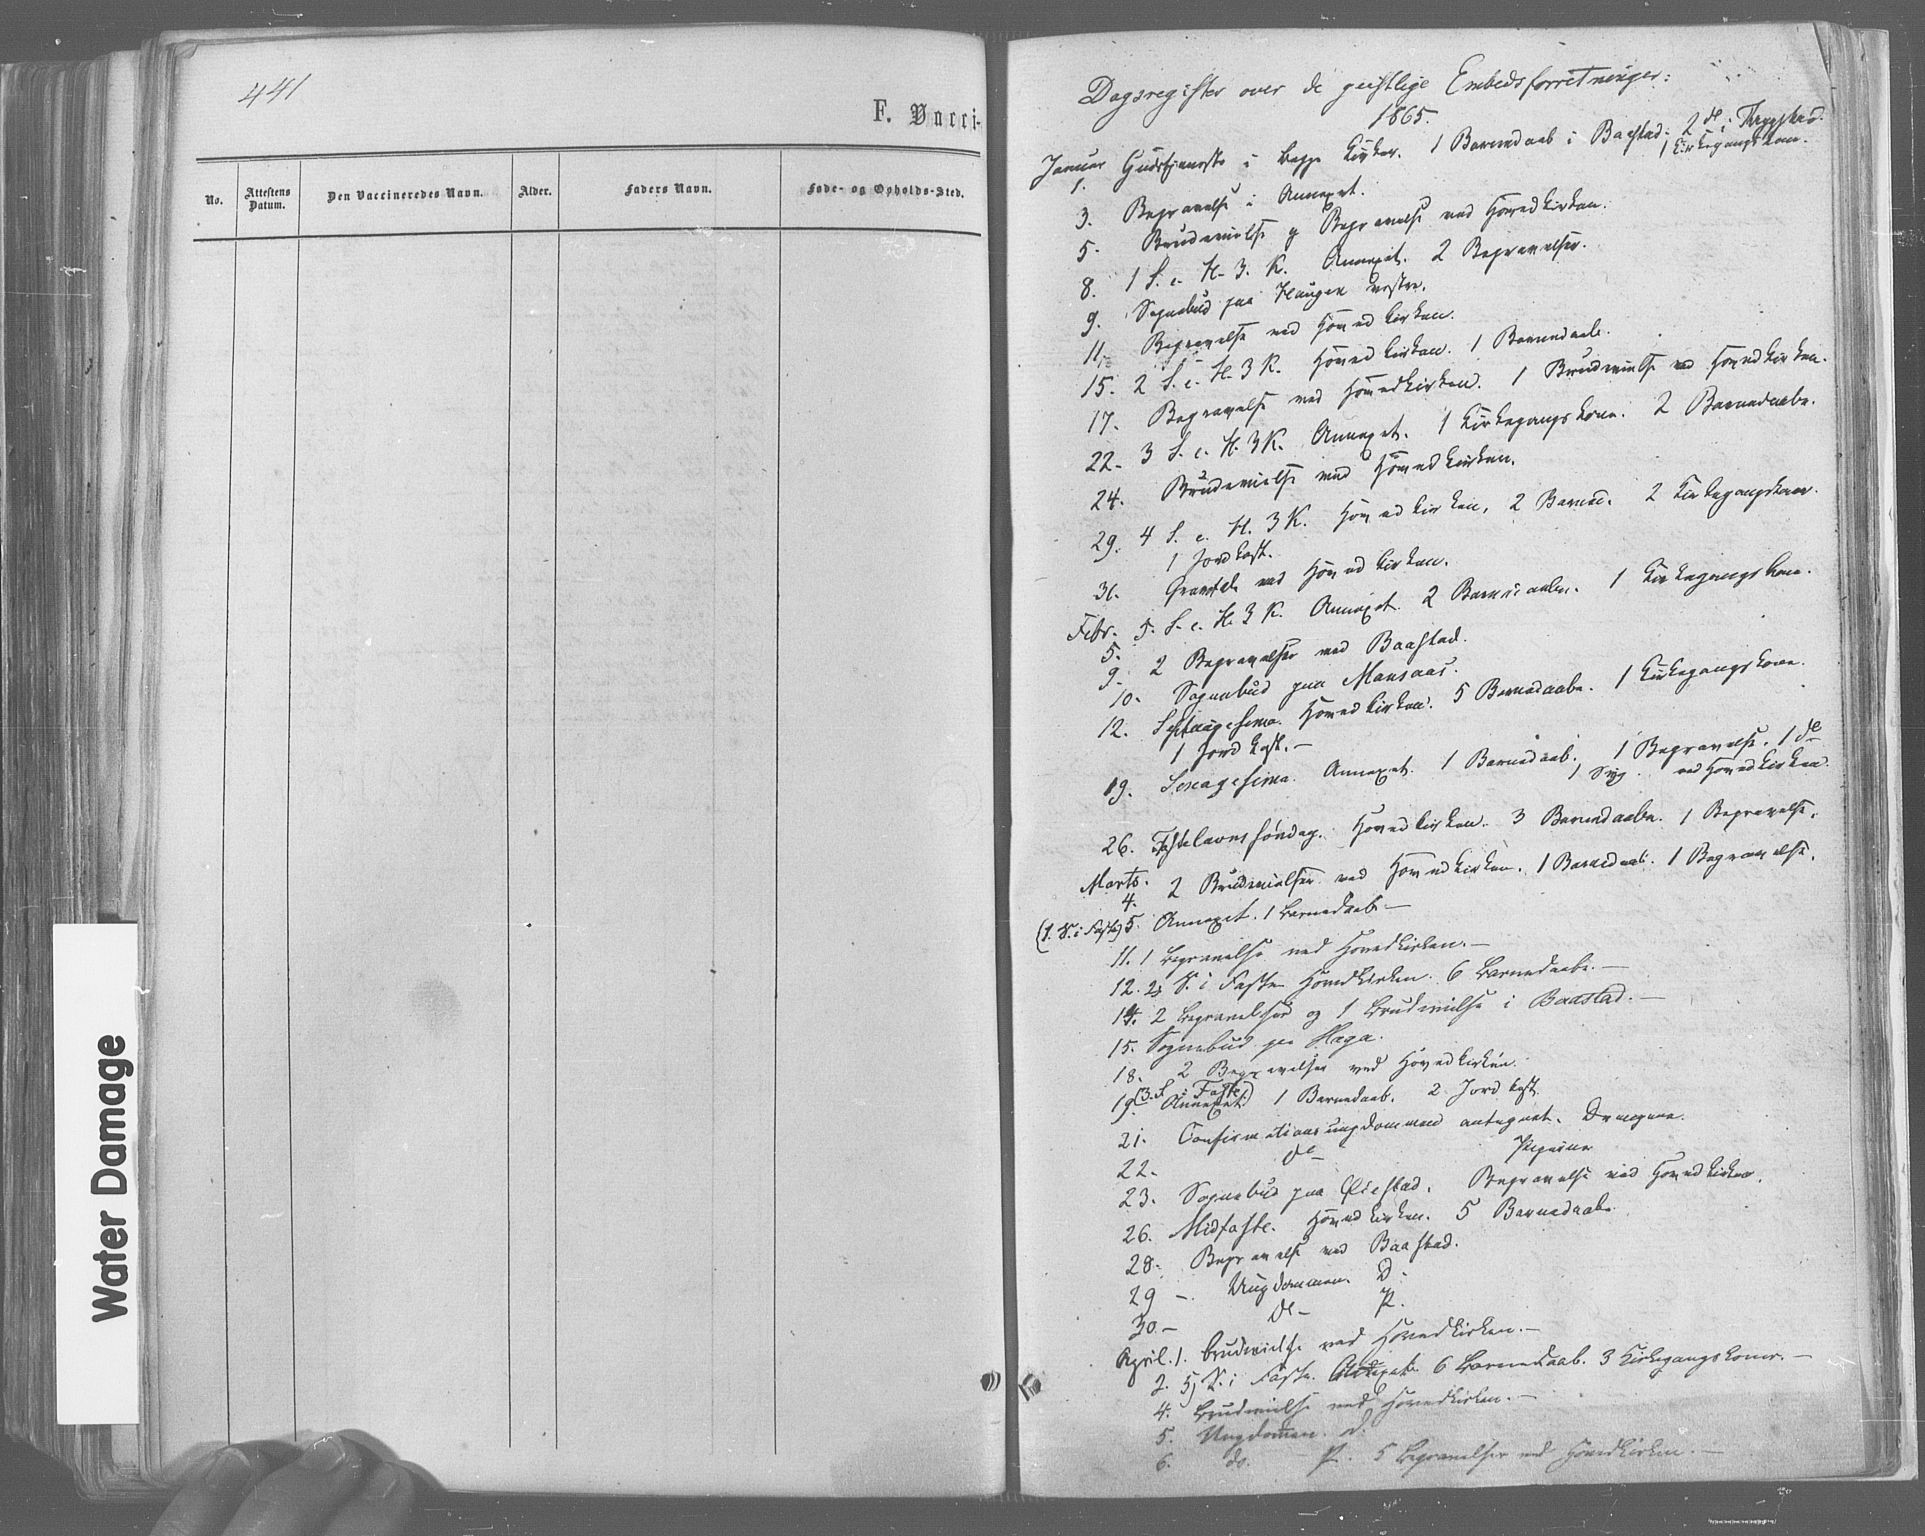 441
F. Vacci-
No.
Attestens Datum.
Den Vaccineredes Navn.
Alder.
Faders Navn.
Føde- og Opholds-Sted.
Water Damage
Dagsregister over de geistlige Embedsforretninger:
1865.
Januar 1. Gudstjeneste i begge Kirker. 1 Barnedaab i Baastad. 2 do i Thrygstad.
1 Kirkegangskone.
3. Begravelse i Annexet.
5. Brudevielse og Begravelse ved Hovedkirken.
8. 1 S. e. H. 3. K. Annexet. 2 Begravelser.
9. Sognebud paa Haugen vestre.
11. Begravelse ved Hovedkirken.
15. 2 S. e. H. 3 K. Hovedkirken. 1 Barnedaab.
17. Begravelse ved Hovedkirken. 1 Brudevielse ved Hovedkirken.
22. 3 S. e. H. 3 K. Annexet. 1 Kirkegangskone. 2 Barnedaabe.
24. Brudevielse ved Hovedkirken.
29. 4 S. e. H. 3 K. Hovedkirken, 2 Barned. 2 Kirkegangskoner.
1 Jordkast.
31. ved Hovedkirken.
Febr. 5. 5. S. e. H. 3 K. Annexet. 2 Barnedaabe. 1 Kirkegangskone.
9. 2 Begravelser ved Baastad.
10. Sognebud paa Monsaas.
12. Septuagesima. Hovedkirken. 5 Barnedaabe. 1 Kirkegangskone.
1 Jordkast. —
19. Sexagesima. Annexet. 1 Barnedaab. 1 Begravelse. 1 do
1 ved Hovedkirken.
26. Fastelavnssøndag. Hovedkirken. 3 Barnedaabe. 1 Begravelse.
Marts. 4. 2 Brudevielser ved Hovedkirken. 1 Barnedaab. 1 Begravelse.
(1. S. i Faste) 5. Annexet. 1 Barnedaab —
11. 1 Begravelse ved Hovedkirken. —
12. 2) S. i Faste Hovedkirken. 6 Barnedaabe. —
14. 2 Begravelser og 1 Brudevielse i Baastad. —
15. Sognebud pa Haga.
18. 2 Begravelser ved Hovedkirken.
19 (3. S. i Faste) Annexet. 1 Barnedaab. 2 Jordkast.
21. Confirmationsungdommen antegnet. Drengene.
22. do Pigerne
23. Sognebud paa Øiestad. Begravelse ved Hovedkirken.
26. Midfaste. Hovedkirken. 5 Barnedaabe
28. Begravelse ved Baastad.
29 —. Ungdommen. D.
30 — do — P.
April. 1. Brudevielse ved Hovedkirken. —
2. 5) S. i Faste. Annexet. 6 Barnedaab. 3 Kirkegangskoner. —
4. Brudevielse ved Hovedkirken. —
5. Ungdommen. D.
6. do. P. 5 Begravelser ved Hovedkirken. —